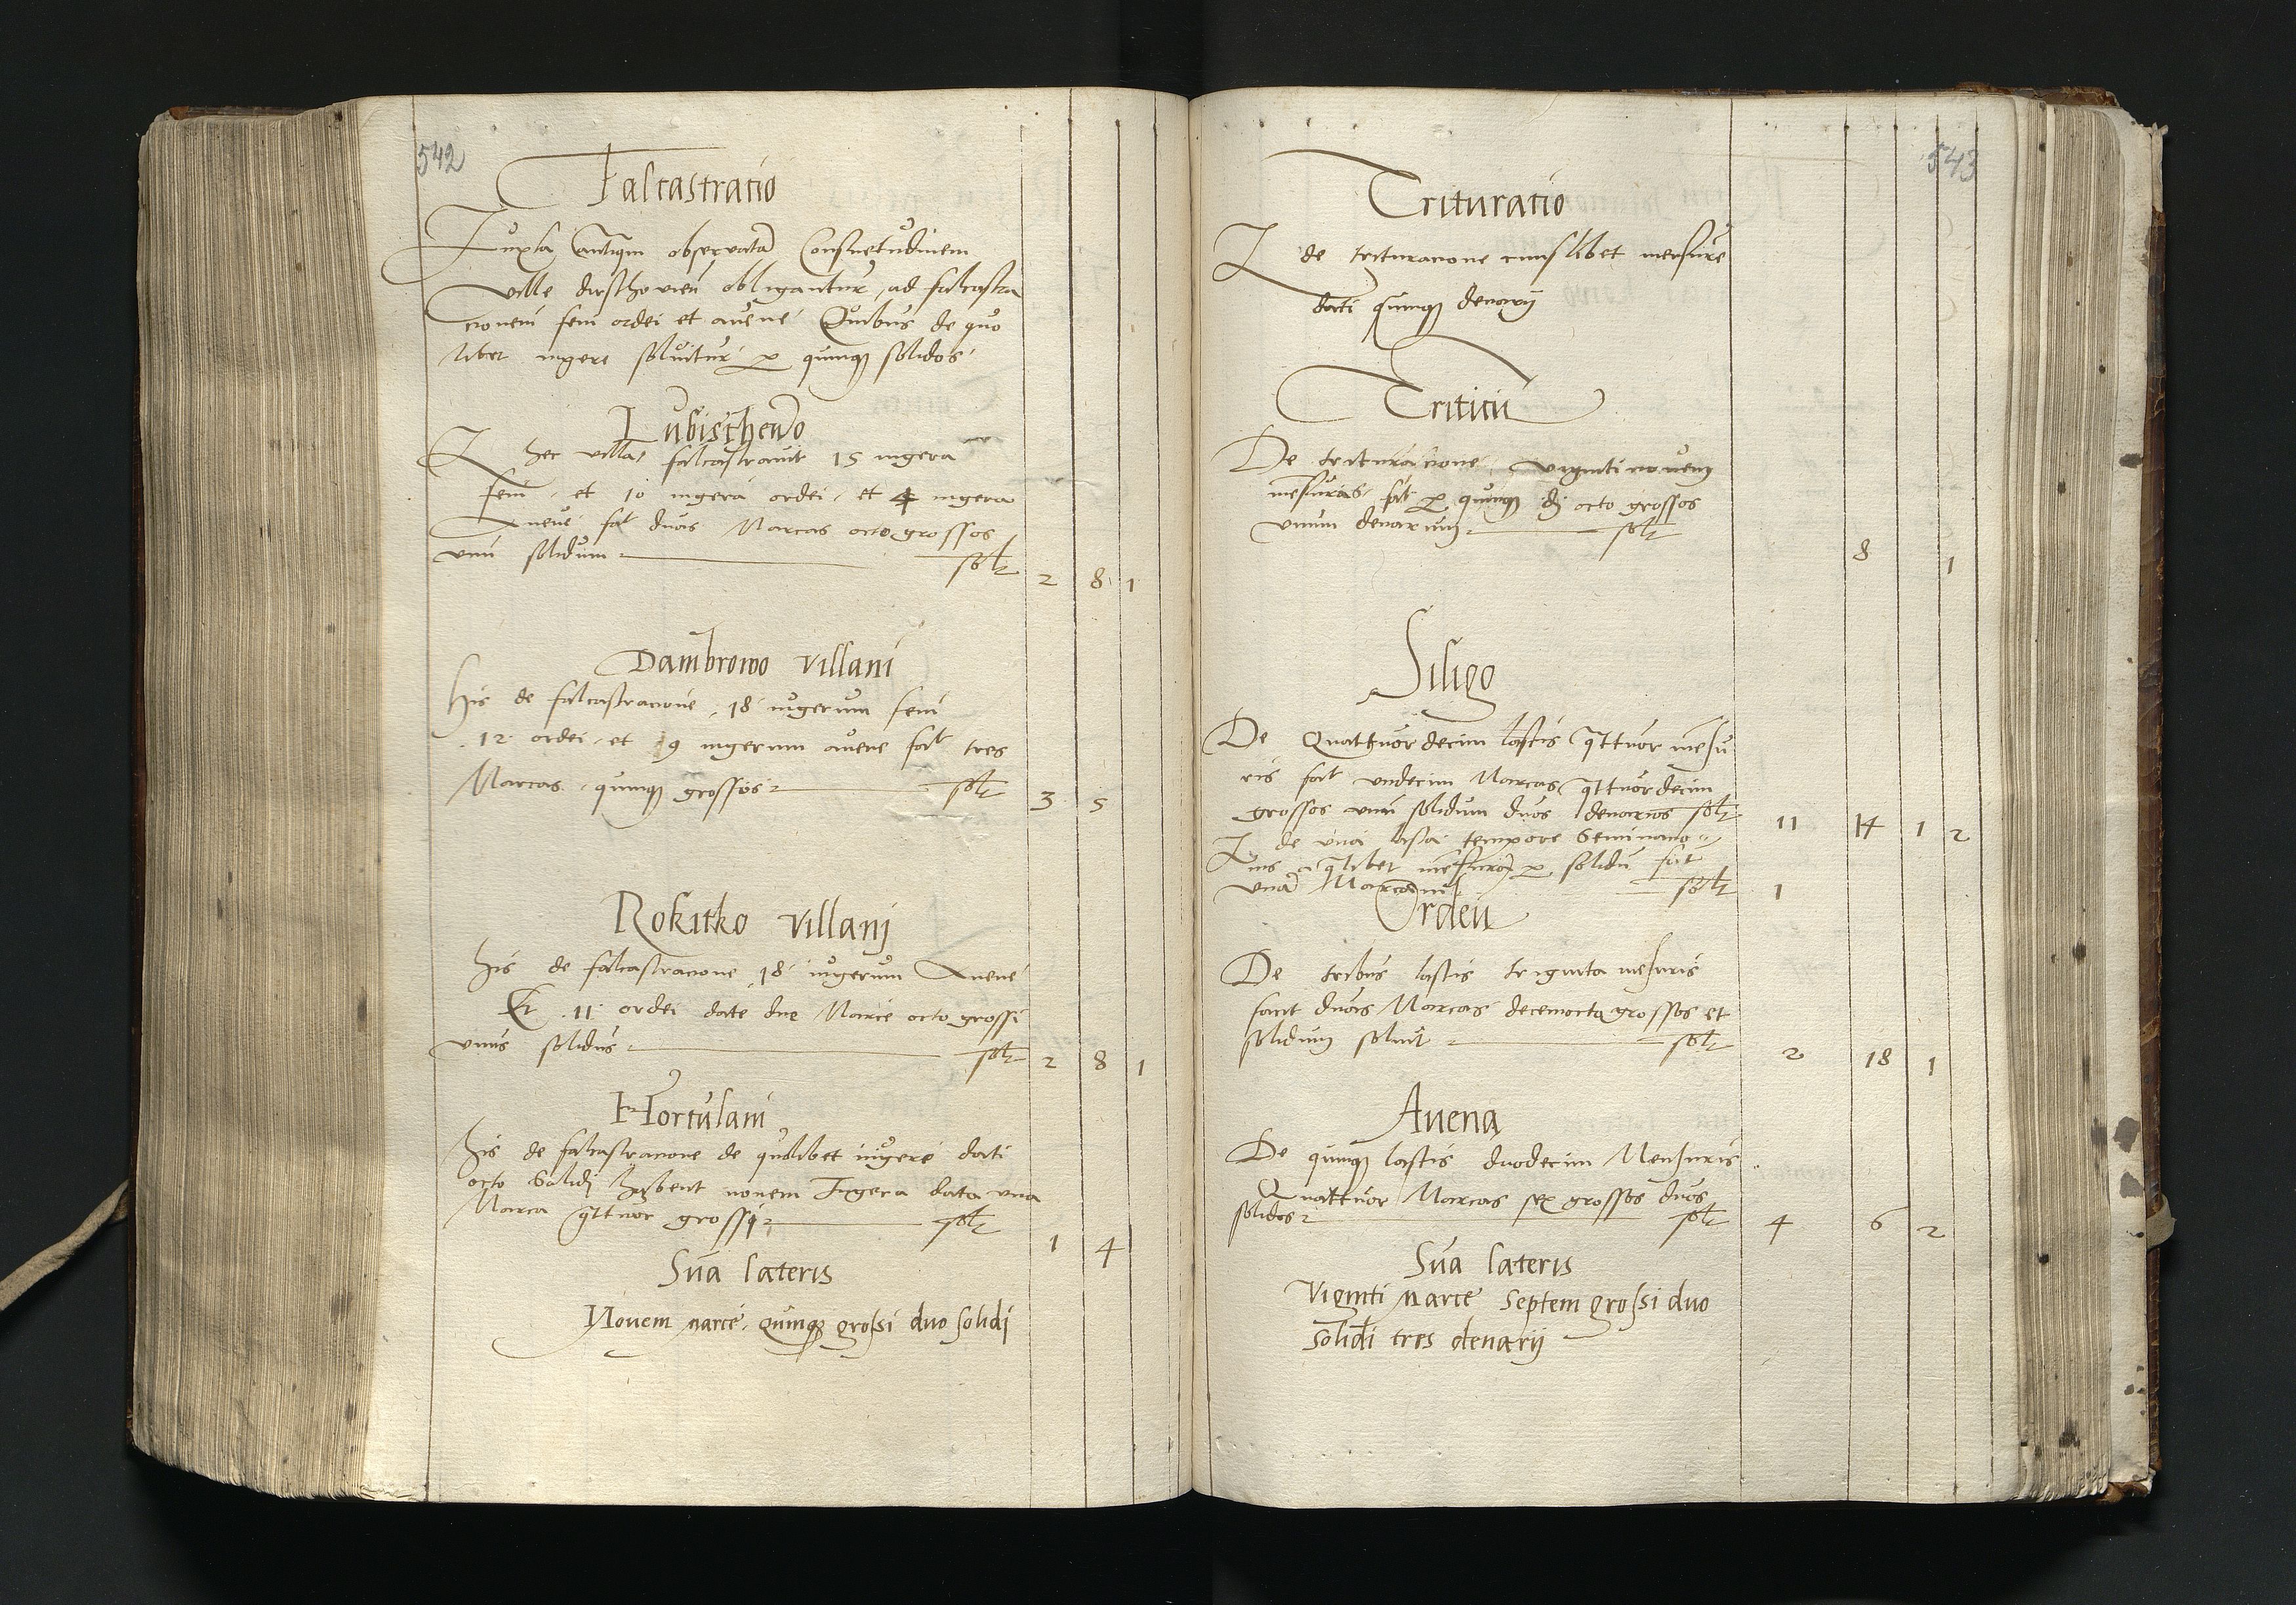 542
Falcastratio
Iuxta Antiqm observatā Consuetudinem
ville dirschovien obligantur, ad falcastra
cionem feni ordei et avene Quibus de quo
libet iugere solvitur p quinqȝ solidos
Lubischewo
It hec villa falcastravit 15 iugera
feni et 10 iugera ordei et 4 iugera
Avene fat duas Marcas octo grossos
unū solidum solt 2 8 1
Dambrowo villani
His de falcastracione 18 iugerum feni
12 ordei et 9 iugerum avene fat tres
Marcas quinqȝ grossos solt 3 5
Rokitko villanj
His de falcastracione 18 iugerum Avene
Et 11 ordei date due Marce octo grossi
unus solidus solt 2 8 1
Hortulani
His de falcastracione de quolibet iugere dati
octo Solidj habent novem Iugera data una
Marca qttuor grossi solt 1 4
Sūa lateris
Novem marce quinqȝ grossi duo solidj
543
Trituratio
It de trituracione cuiuslibet mensure
dati quinqȝ denarij
Triticū
De trituracione viginti novem
mensuras fat p quinqȝ dj octo grossos
unum denarium solt 8 1
Siligo
De Quattuordecim lastis qttuor mensu
ris fat undecim Marcas qttuordecim
grossos unū solidum duos denarios solt 11 14 1 2
It de una lasta tempore Seminacio
nis a qlibet mensura p solidū fat
unā Marcam solt 1
Ordeū
De tribus lastis triginta mensuris
facit duas Marcas decemocto grossos et
solidum solvit solt 2 18 1
Avena
De quinqȝ lastis duodecim Mensuris
Quattuor Marcas sex grossos duos
solidos solt 4 6 2
Sūa lateris
Viginti marce septem grossi duo
solidi tres denarij